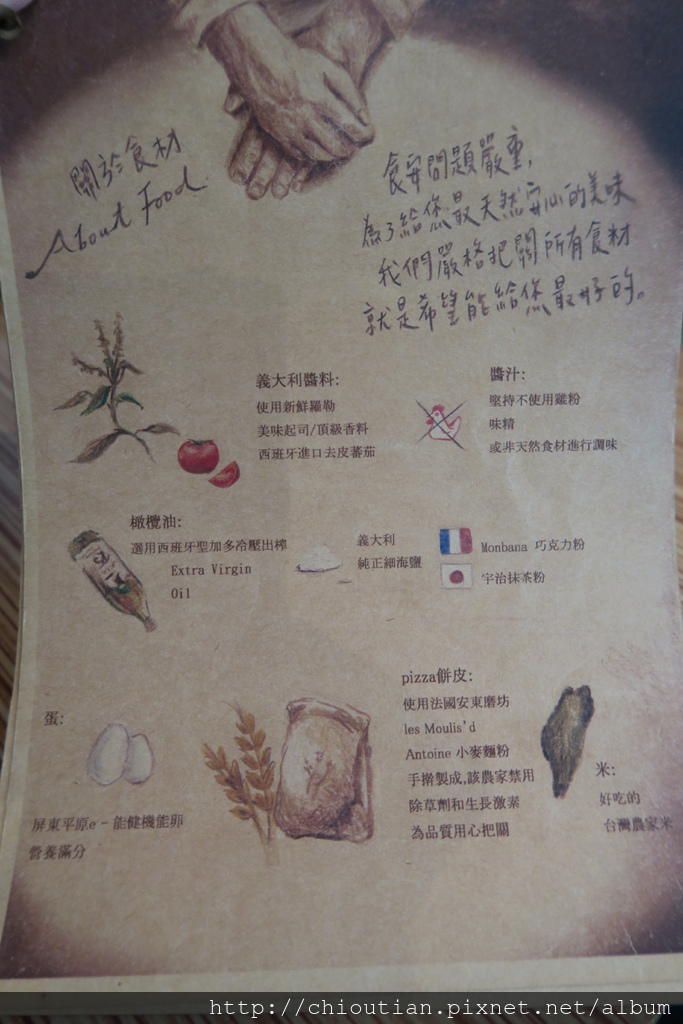 關於食材
About Food
食安問題嚴重,
為了給您最天然安心的美味
我們嚴格把關所有食材
就是希望能給您最好的。
義大利醬料:
使用新鮮羅勒
美味起司/頂級香料
西班牙進口去皮蕃茄
醬汁:
堅持不使用雞粉
味精
或非天然食材進行調味
橄欖油:
選用西班牙聖加多冷壓出榨
Extra Virgin
Oil
義大利
純正細海鹽
Monbana 巧克力粉
宇治抹茶粉
蛋:
屏東平原e-能健機能卵
營養滿分
pizza餅皮:
使用法國安東磨坊
les Moulis'd
Antoine 小麥麵粉
手擀製成,該農家禁用
除草劑和生長激素
為品質用心把關
米:
好吃的
台灣農家米
http://chioutian.pixnet.net/album